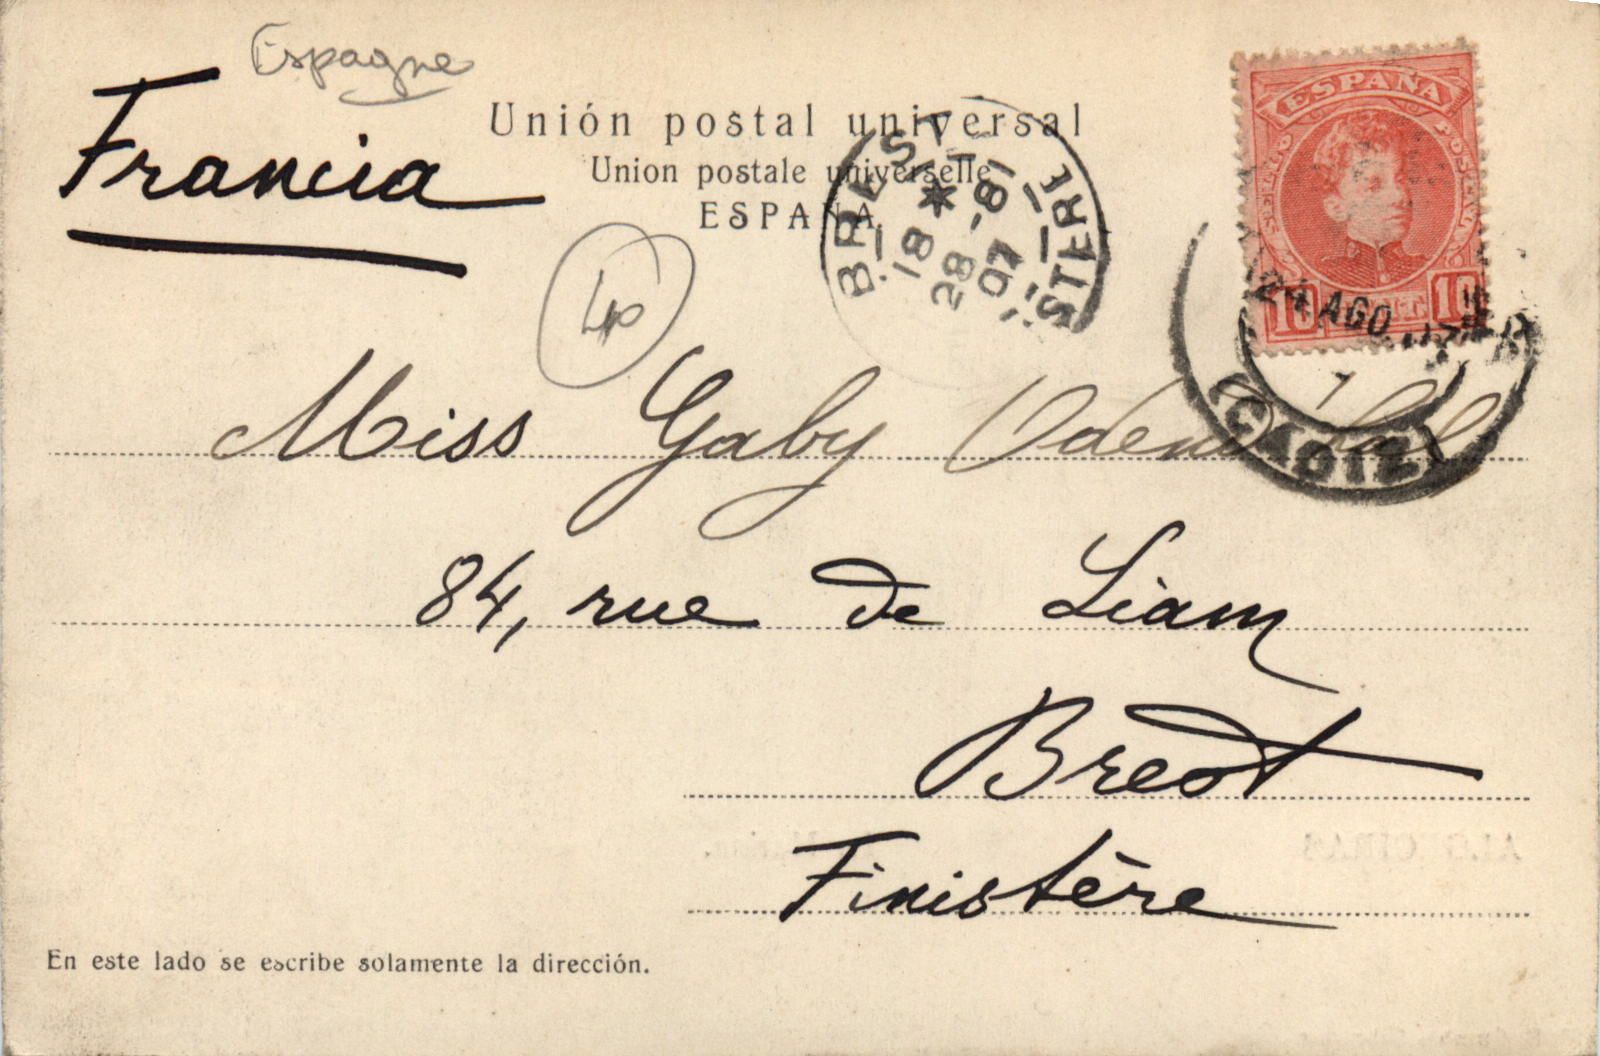 Espagne
Francia
Unión postal universal
Union postale universelle
ESPAÑA
BREST
FINISTERE
18
28 -8
07
ESPAÑA
10 10
24 AGO 07
(CADIZ)
Miss Gaby
84, rue de Siam
Brest
Finistère
ALGECIRAS
En este lado se escribe solamente la dirección.